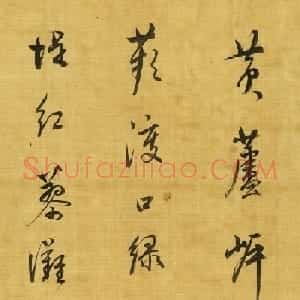 黄蘆岸
蘋渡口綠
堤紅蓼灘
Shufaziliao.com